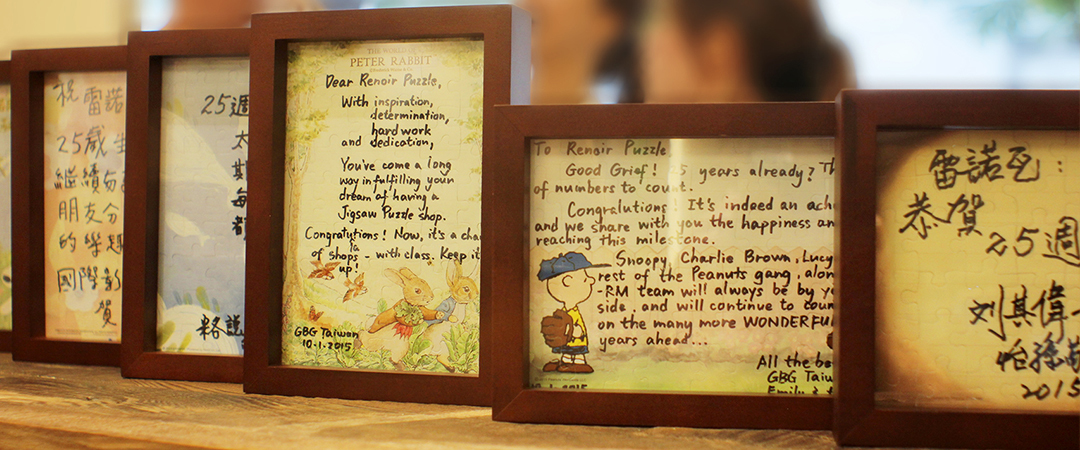 祝 雷諾
25歲生
繼續
朋友分
的樂趣
國際彰
賀
25週
太
每
都
THE WORLD OF
PETER RABBIT
Dear Renoir Puzzle,
With inspiration,
determination,
hard work
and dedication,
You've come a long
way in fulfilling your
dream of having a
Jigsaw Puzzle shop.
Congratutions! Now, it's a chai
of shops - with class. Keep it
up!
GBG Taiwan
10-1-2015
To Renoir Puzzle
Good Grief! 25 years already? Th
of numbers to count.
Congralutions! It's indeed an ach
and we share with you the happiness an
reaching this milestone.
Snoopy, Charlie Brown, Lucy
rest of the Peanuts gang, alon
-RM team will always be by yo
side, and will continue to coun
on the many more WONDERFUL
years ahead...
All the be
GBG Taiw
Emily &
雷諾瓦:
恭賀
25週
刘其偉
2015